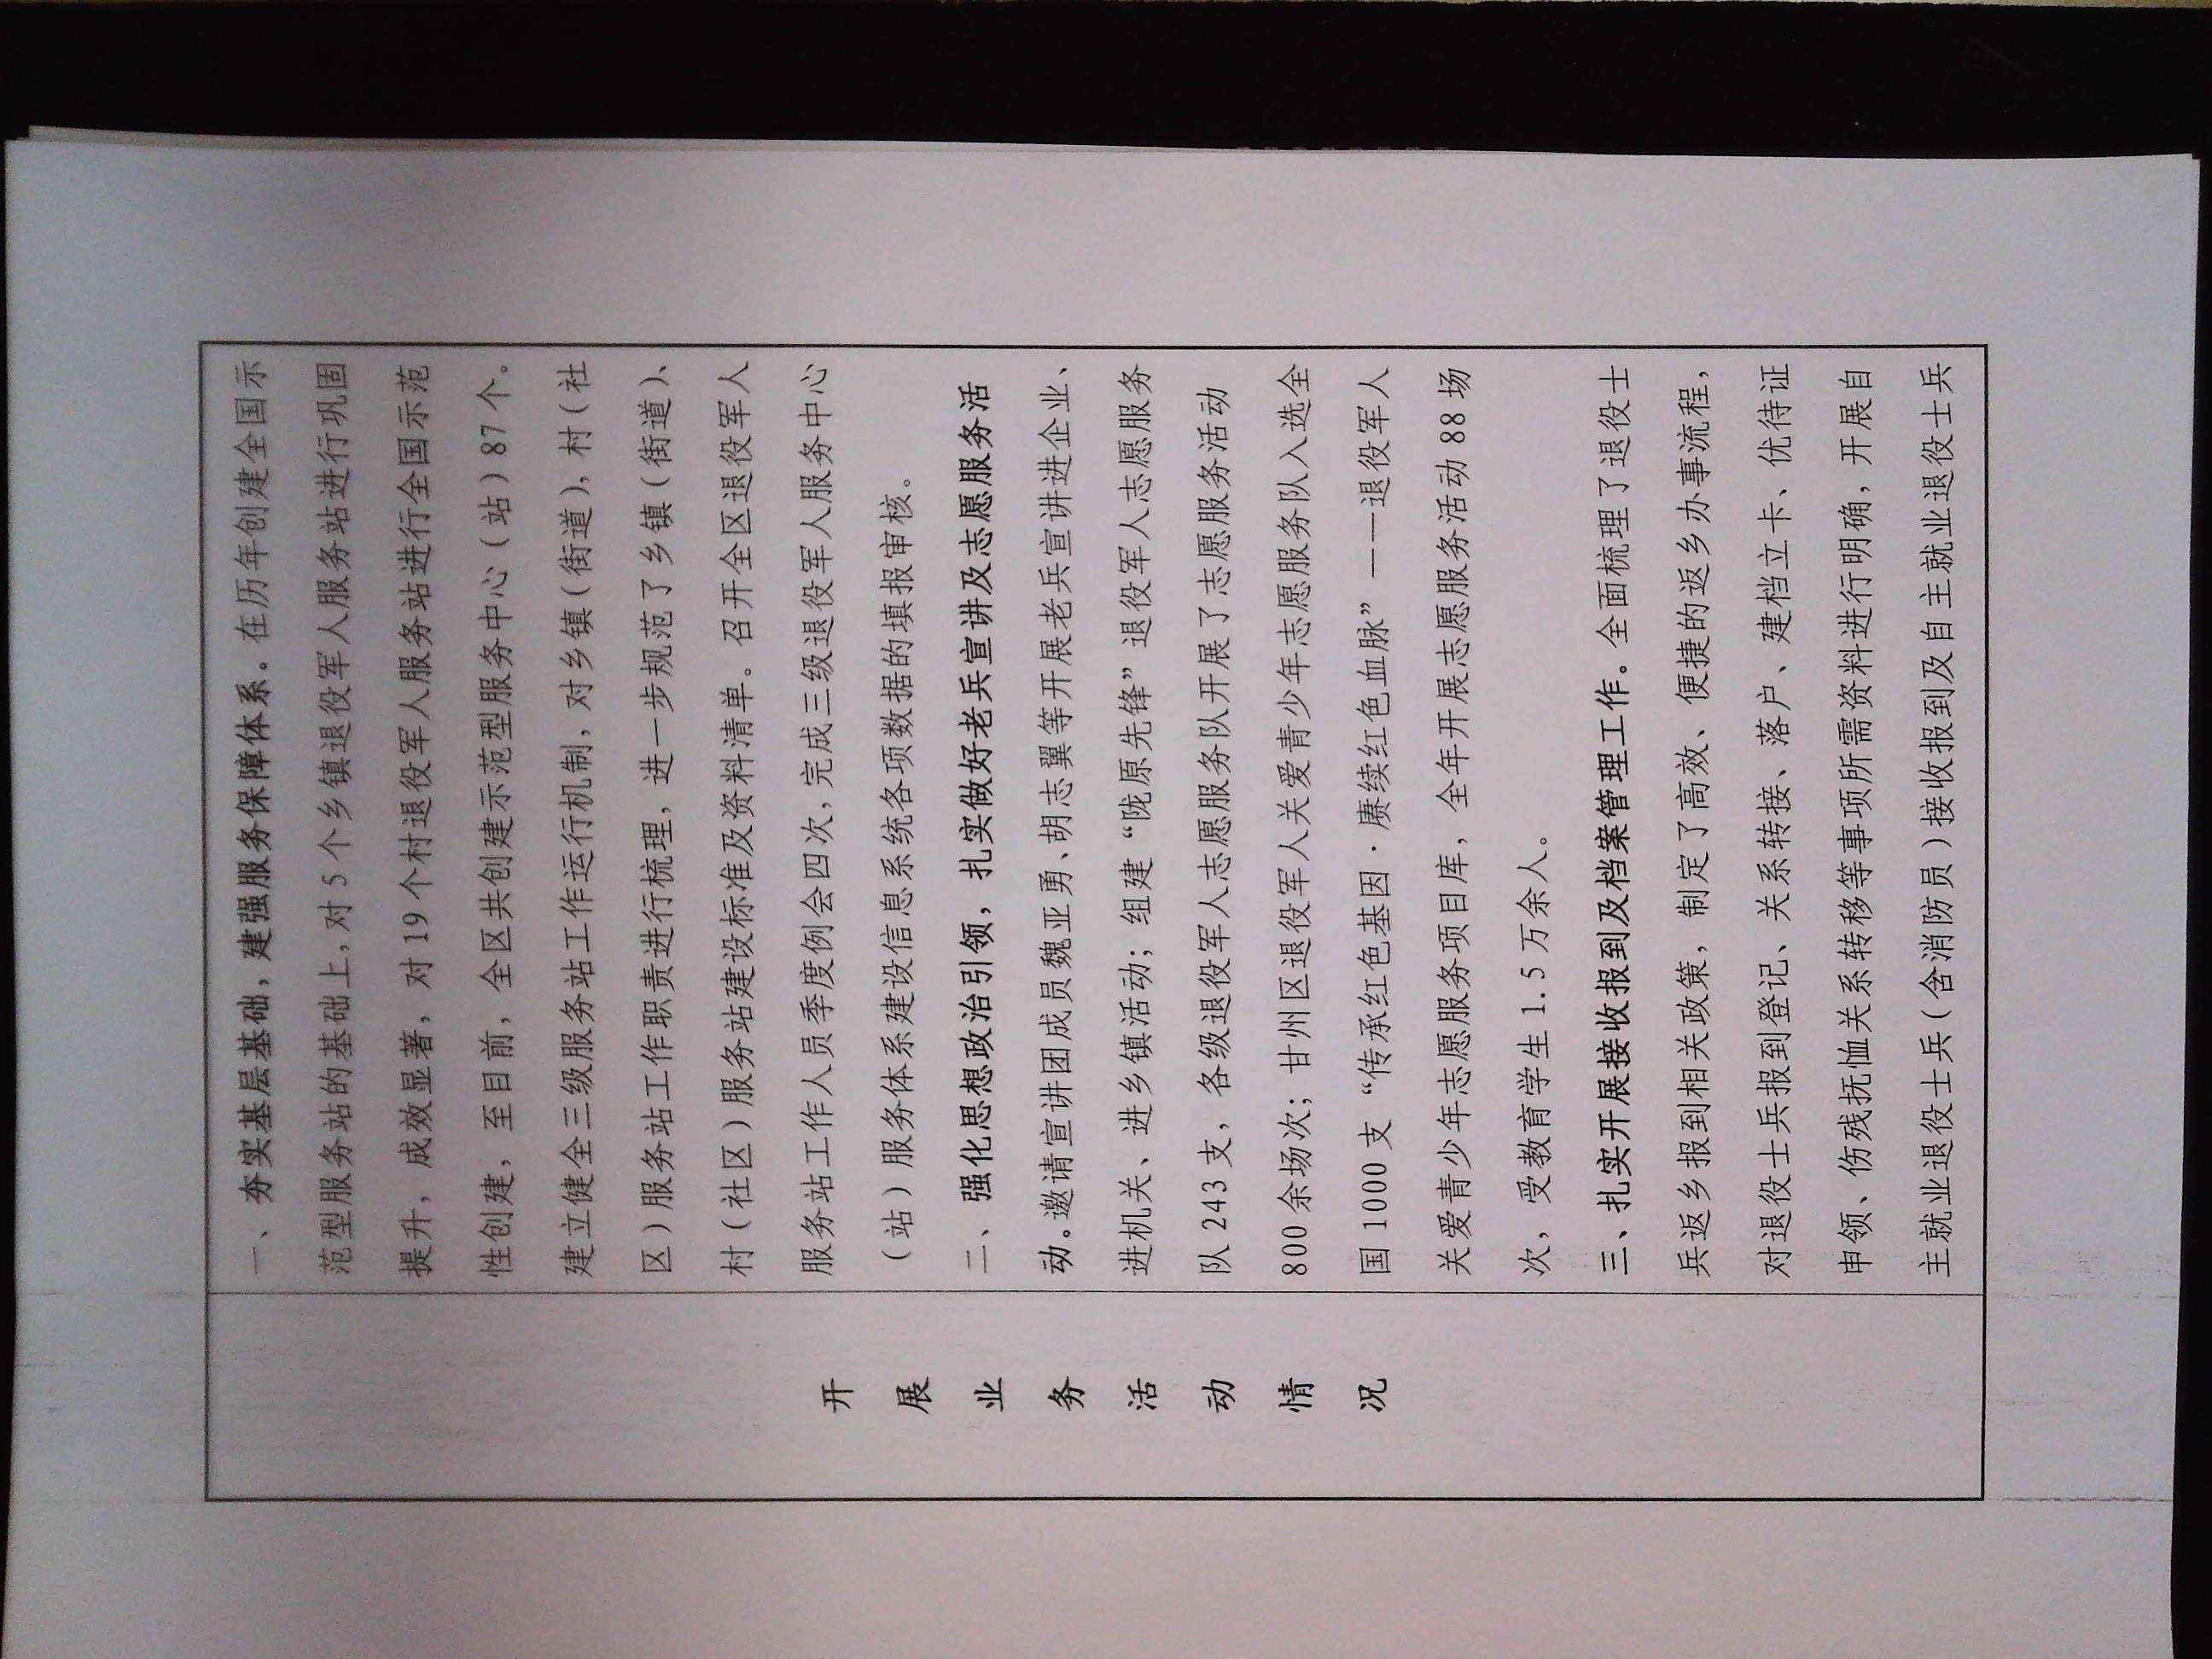 开展业务活动情况
一、夯实基层基础，建强服务保障体系。在历年创建全国示
范型服务站的基础上，对5个乡镇退役军人服务站进行巩固
提升，成效显著，对19个村退役军人服务站进行全国示范
性创建，至目前，全区共创建示范型服务中心（站）87个。
建立健全三级服务站工作运行机制，对乡镇（街道），村（社
区）服务站工作职责进行梳理，进一步规范了乡镇（街道）、
村（社区）服务站建设标准及资料清单。召开全区退役军人
服务站工作人员季度例会四次，完成三级退役军人服务中心
（站）服务体系建设信息系统各项数据的填报审核。
二、强化思想政治引领，扎实做好老兵宣讲及志愿服务活
动。邀请宣讲团成员魏亚勇、胡志翼等开展老兵宣讲进企业、
进机关、进乡镇活动；组建“陇原先锋”退役军人志愿服务
队243支，各级退役军人志愿服务队开展了志愿服务活动
800余场次；甘州区退役军人关爱青少年志愿服务队入选全
国1000支“传承红色基因·赓续红色血脉”——退役军人
关爱青少年志愿服务项目库，全年开展志愿服务活动88场
次，受教育学生1.5万余人。
三、扎实开展接收报到及档案管理工作。全面梳理了退役士
兵返乡报到相关政策，制定了高效、便捷的返乡办事流程，
对退役士兵报到登记、关系转接、落户、建档立卡、优待证
申领、伤残抚恤关系转移等事项所需资料进行明确，开展自
主就业退役士兵（含消防员）接收报到及自主就业退役士兵